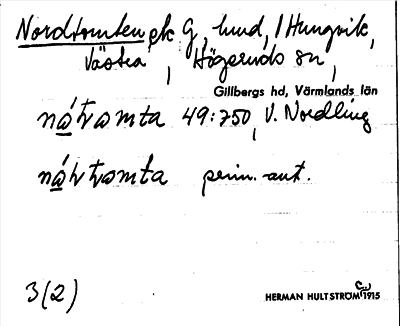 Nordtomten, ek G, hmd, i Hungvik,
Västra, Högeruds sn,
Gillbergs hd, Värmlands län
49:750, V. Nordling
prim. ant.
3(2)
HERMAN HULTSTRÖM 1915